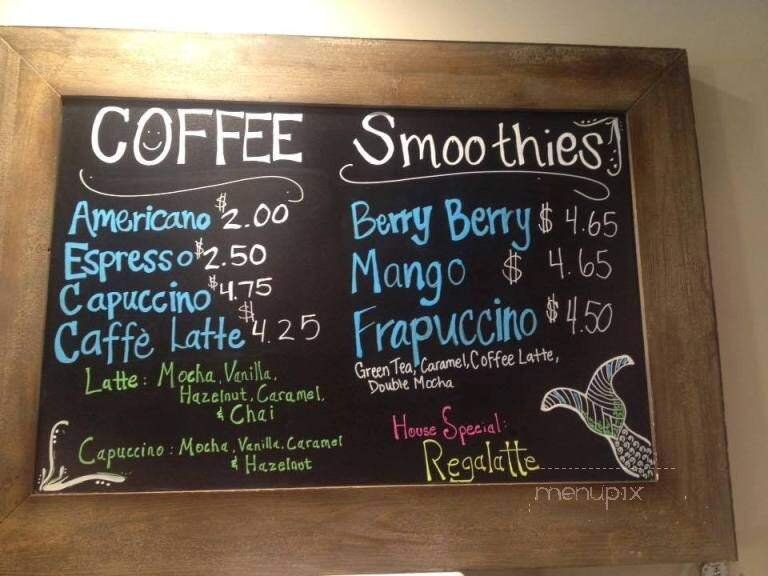 COFFEE
Americano $2.00
Espresso $2.50
Capuccino $4.75
Caffè Latte $4.25
Latte: Mocha, Vanilla,
Hazelnut, Caramel,
& Chai
Capuccino: Mocha, Vanilla, Caramel
& Hazelnot
Smoothies
Berry Berry $4.65
Mango $ 4.65
Frapuccino $4.50
Green Tea, Caramel, Coffee Latte,
Double Mocha
House Special:
Regalatte
menupix